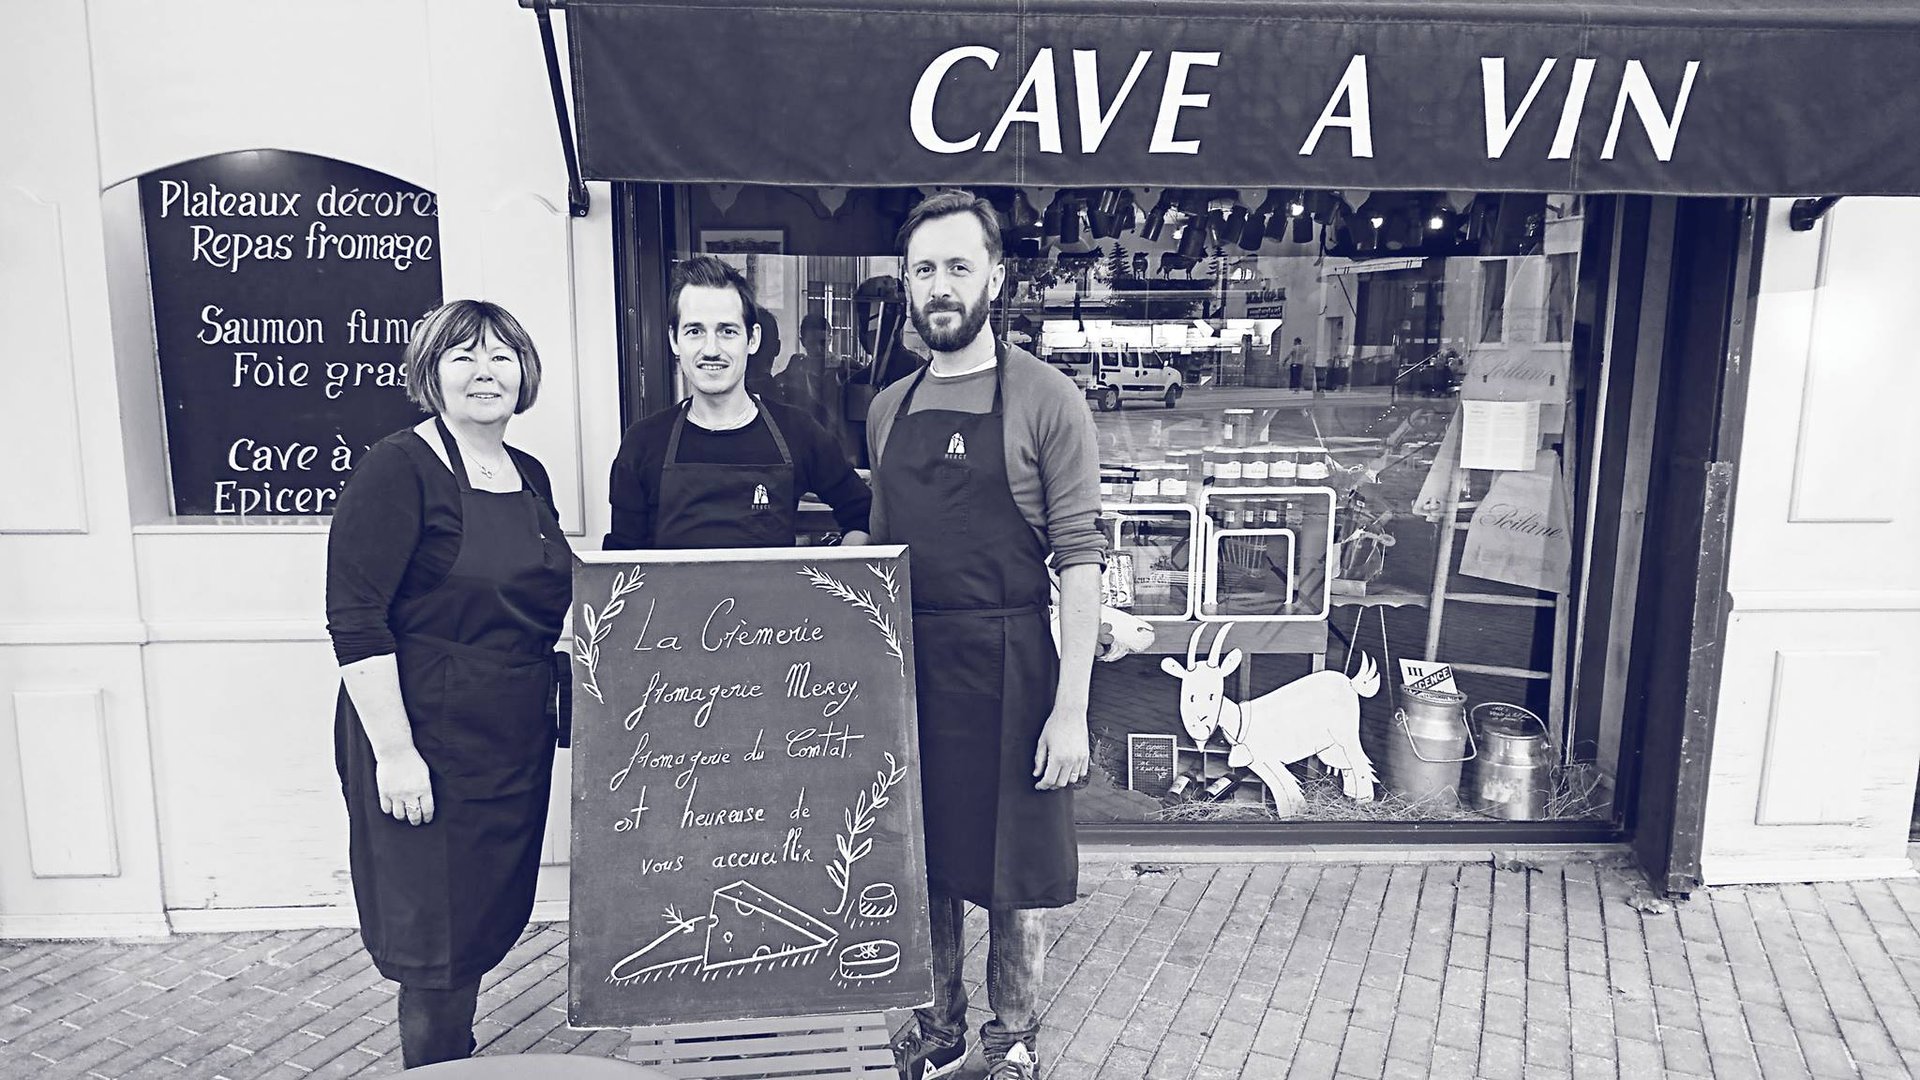 CAVE A VIN
Plateaux décorés
Repas fromage
Saumon fumé
Foie gras
Cave à
Epiceri
MERCY
MERCY
La Crèmerie
fromagerie Mercy,
fromagerie du Comtat,
est heureuse de
vous accueillir
Poilâne
Poilâne
III
LICENCE